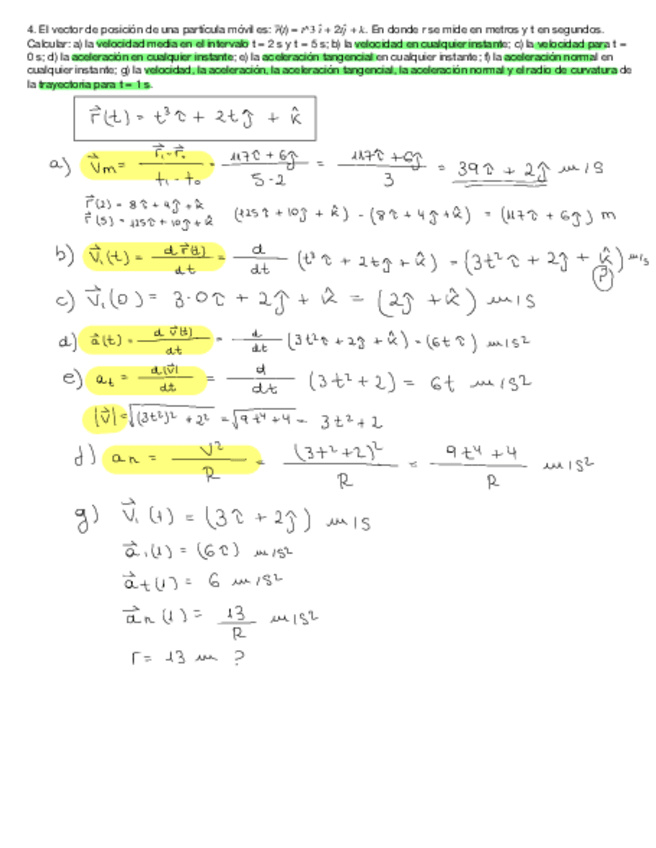 4. El vector de posición de una partícula móvil es: r⃗(t) = t^3 î + 2tĵ + k. En donde r se mide en metros y t en segundos.
Calcular: a) la velocidad media en el intervalo t = 2 s y t = 5 s; b) la velocidad en cualquier instante; c) la velocidad para t =
0 s; d) la aceleración en cualquier instante; e) la aceleración tangencial en cualquier instante; f) la aceleración normal en
cualquier instante; g) la velocidad, la aceleración, la aceleración tangencial, la aceleración normal y el radio de curvatura de
la trayectoria para t = 1 s.
r⃗(t) = t³ î + 2t ĵ + k̂
a) v⃗m = (r⃗₁ - r⃗₀)/(t₁ - t₀) = (117î + 6ĵ)/(5-2) = (117î + 6ĵ)/3 = 39î + 2ĵ m/s
r⃗(2) = 8î + 4ĵ + k̂
r⃗(5) = 125î + 10ĵ + k̂ (125î + 10ĵ + k̂) - (8î + 4ĵ + k̂) = (117î + 6ĵ) m
b) v⃗ᵢ(t) = d r⃗(t)/dt = d/dt (t³î + 2tĵ + k̂) = (3t²î + 2ĵ + k̂) m/s
c) v⃗ᵢ(0) = 3·0î + 2ĵ + k̂ = (2ĵ + k̂) m/s
d) a⃗(t) = d v⃗(t)/dt = d/dt (3t²î + 2ĵ + k̂) = (6t î) m/s²
e) at = d|v⃗|/dt = d/dt (3t² + 2) = 6t m/s²
|v⃗| = √((3t²)² + 2²) = √(9t⁴ + 4) = 3t² + 2
f) an = v²/R = (3t² + 2)²/R = (9t⁴ + 4)/R m/s²
g) v⃗ᵢ(1) = (3î + 2ĵ) m/s
a⃗ᵢ(1) = (6î) m/s²
a⃗t(1) = 6 m/s²
a⃗n(1) = 13/R m/s²
r = 13 m ?